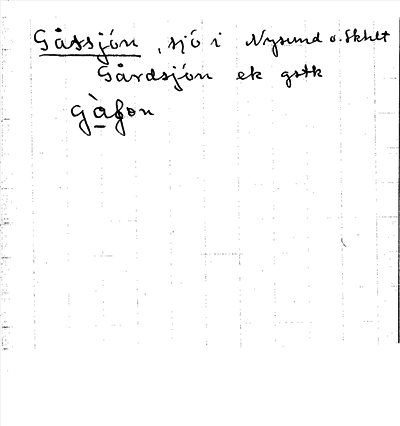 Gåssjön, sjö i Nysund o. Skhlt
Gårdsjön ek gstk
gàfon